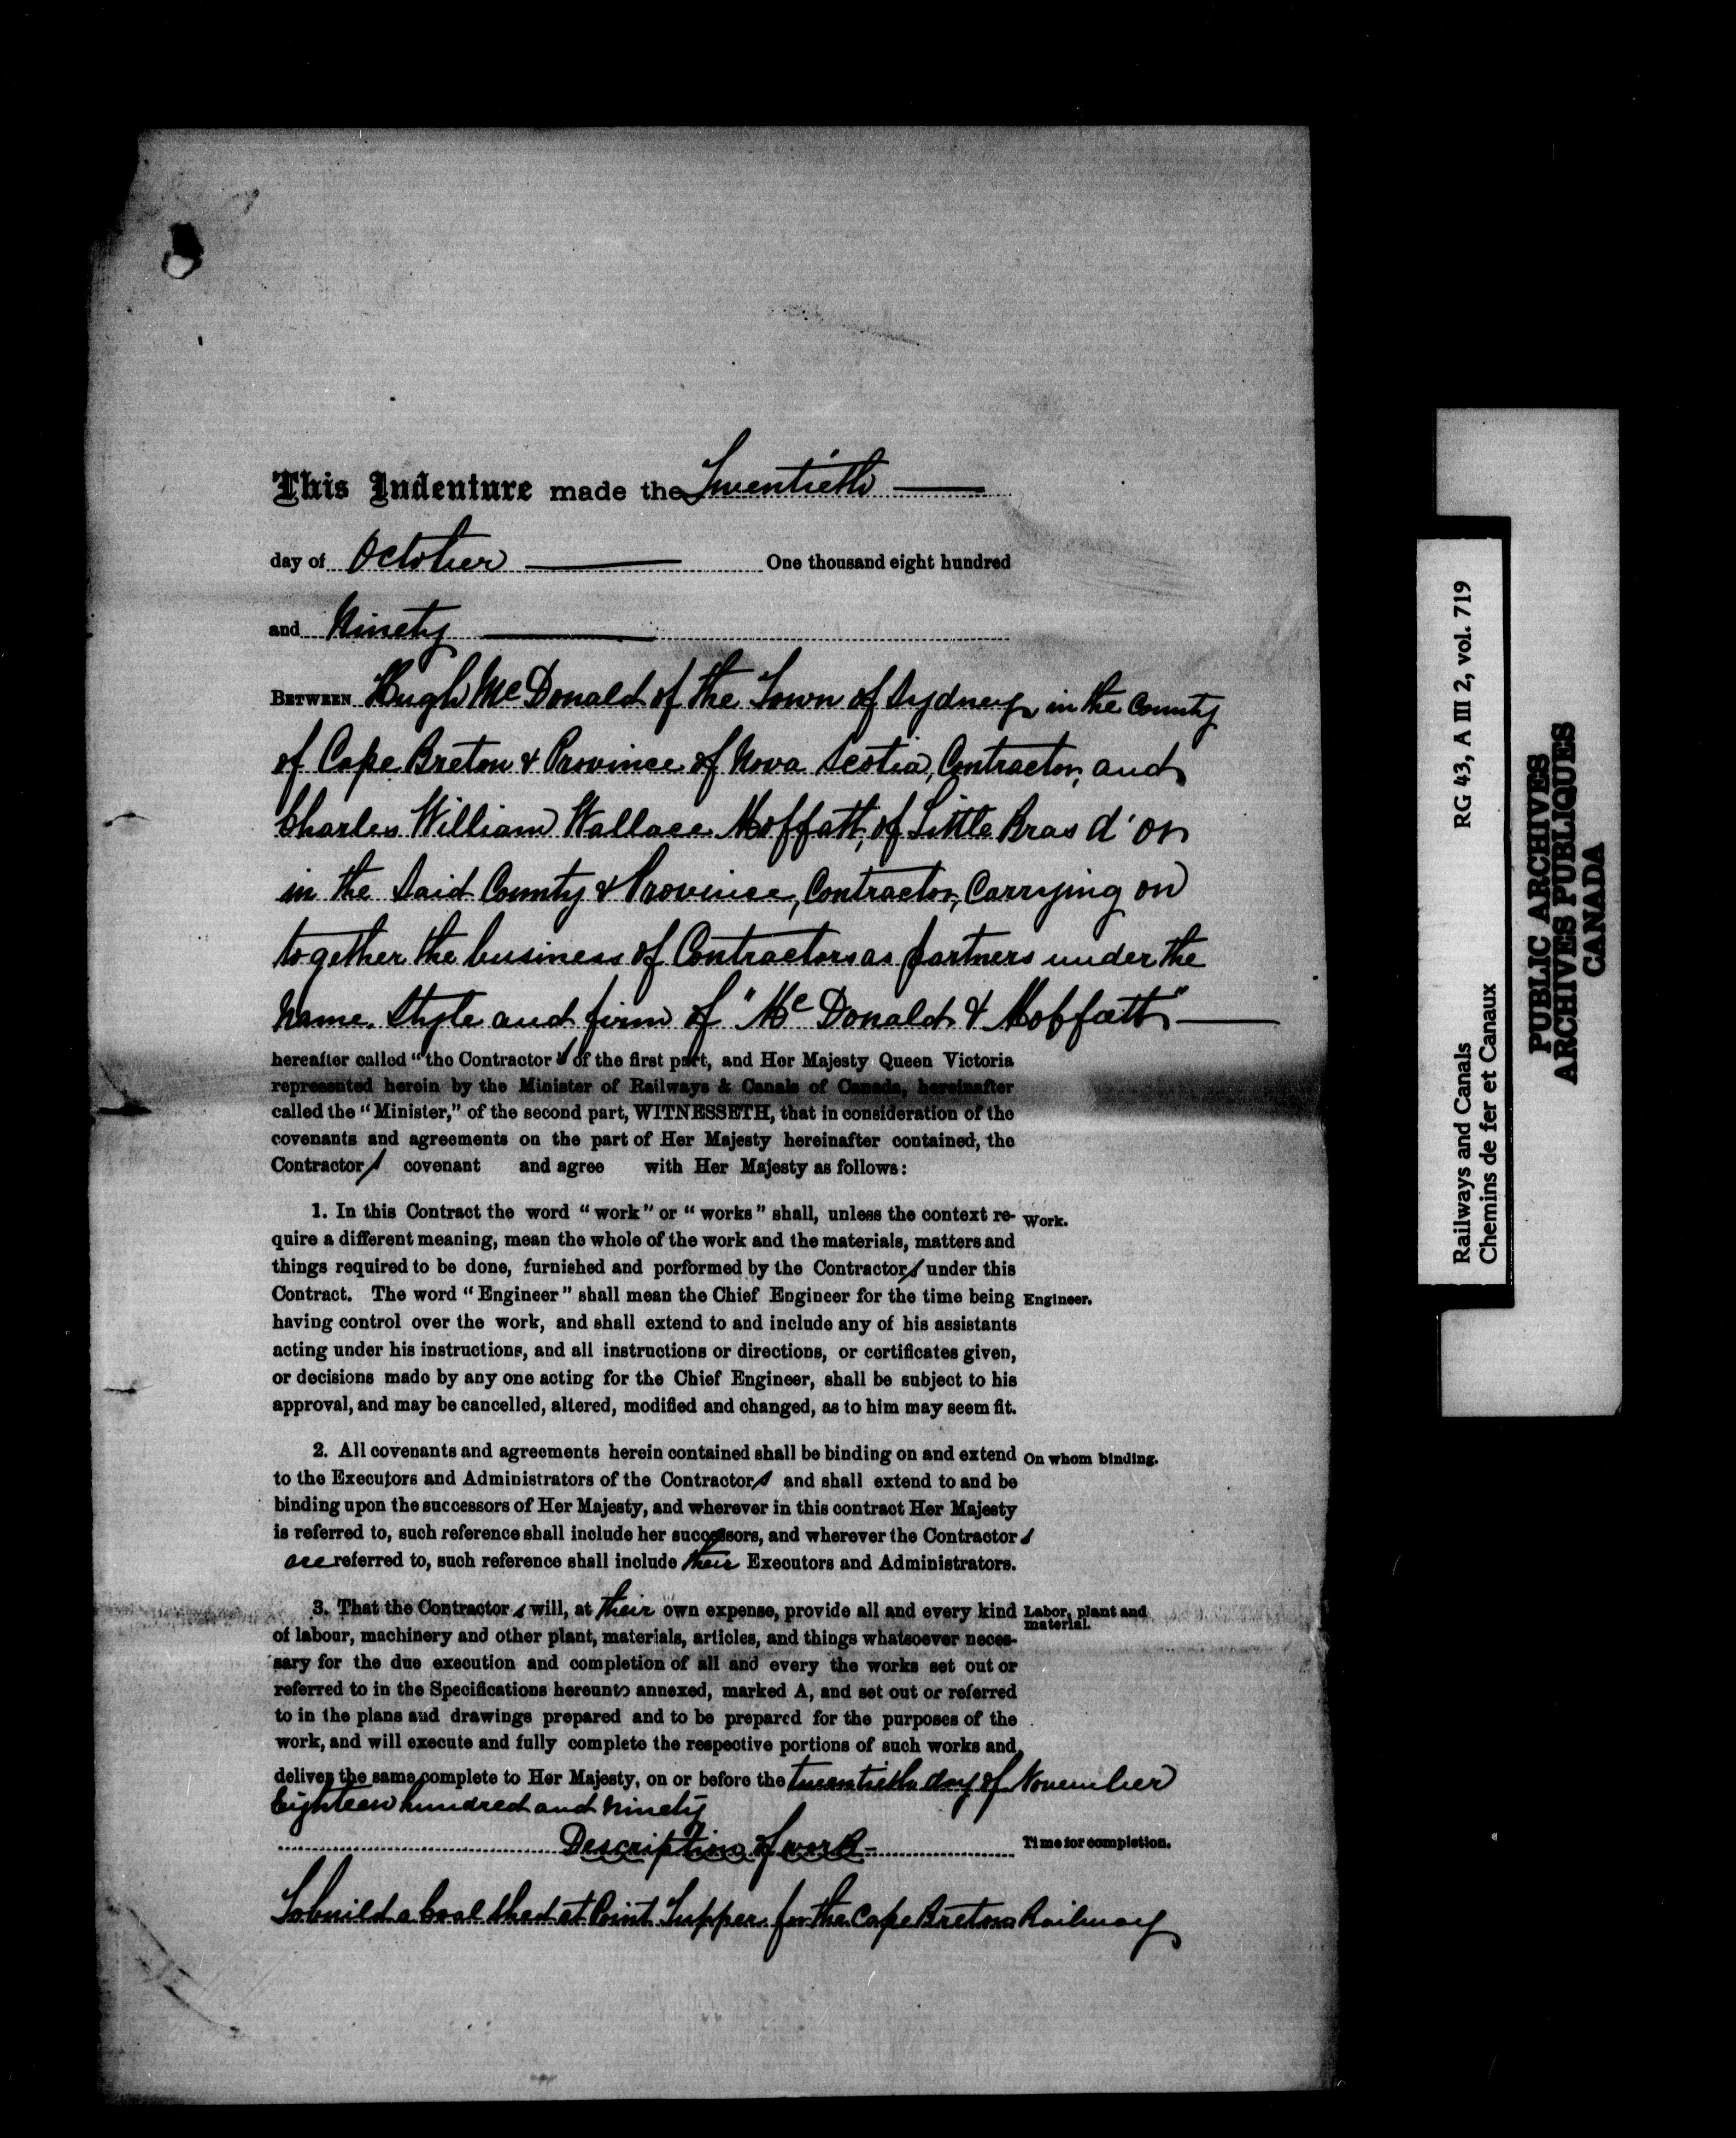 This Indenture made the Twentieth
day of October One thousand eight hundred
and Ninety
BETWEEN Hugh McDonald of the Town of Sydney in the County
of Cape Breton & Province of Nova Scotia, Contractor, and
Charles William Wallace Moffatt, of Little Bras d'or
in the Said County & Province, Contractor, Carrying on
together the business of Contractors as partners under the
Name, Style and firm of "McDonald & Moffatt"
hereafter called "the Contractors" of the first part, and Her Majesty Queen Victoria
represented herein by the Minister of Railways & Canals of Canada, hereinafter
called the "Minister," of the second part, WITNESSETH, that in consideration of the
covenants and agreements on the part of Her Majesty hereinafter contained, the
Contractors covenant and agree with Her Majesty as follows:
1. In this Contract the word "work" or "works" shall, unless the context re- Work.
quire a different meaning, mean the whole of the work and the materials, matters and
things required to be done, furnished and performed by the Contractors under this
Contract. The word "Engineer" shall mean the Chief Engineer for the time being Engineer.
having control over the work, and shall extend to and include any of his assistants
acting under his instructions, and all instructions or directions, or certificates given,
or decisions made by any one acting for the Chief Engineer, shall be subject to his
approval, and may be cancelled, altered, modified and changed, as to him may seem fit.
2. All covenants and agreements herein contained shall be binding on and extend On whom binding.
to the Executors and Administrators of the Contractors and shall extend to and be
binding upon the successors of Her Majesty, and wherever in this contract Her Majesty
is referred to, such reference shall include her successors, and wherever the Contractors
are referred to, such reference shall include their Executors and Administrators.
3. That the Contractors will, at their own expense, provide all and every kind Labor, plant and
material.
of labour, machinery and other plant, materials, articles, and things whatsoever neces-
sary for the due execution and completion of all and every the works set out or
referred to in the Specifications hereunto annexed, marked A, and set out or referred
to in the plans and drawings prepared and to be prepared for the purposes of the
work, and will execute and fully complete the respective portions of such works and
deliver the same complete to Her Majesty, on or before the twentieth day of November
Eighteen hundred and ninety
Description of work Time for completion.
To build a Coal Shed at Point Tupper for the Cape Breton Railway
Railways and Canals RG 43, A III 2, vol. 719
Chemins de fer et Canaux
PUBLIC ARCHIVES
ARCHIVES PUBLIQUES
CANADA